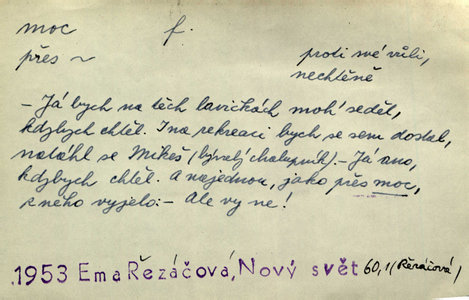 moc f.
přes ~ proti své vůli,
nechtěně
- Já bych na těch lavičkách moh' sedět,
kdybych chtěl. I na rekreaci bych se sem dostal,
natáhl se Mikeš (bývalý chalupník). - Já ano,
kdybych chtěl. A najednou, jako přes moc,
z něho vyjelo: - Ale vy ne!
.1953 Ema Řezáčová, Nový svět 60,1 (Řezáčová)